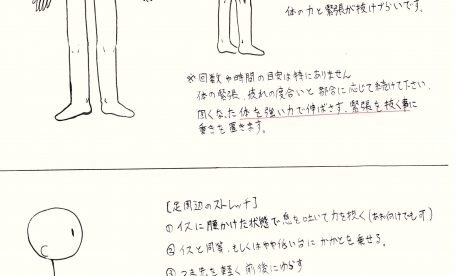 体の力と緊張が抜けづらいです。
※回数や時間の目安は特にありません
体の緊張、疲れの度合いと都合に応じて続けて下さい
固くなった体を強い力で伸ばさず、緊張を抜く事に
重きを置きます。
[足周辺のストレッチ]
①イスに腰かけた状態で息を吐いて力を抜く(あお向けでも可)
②イスと同等、もしくはやや低い台にかかとを乗せる。
③つま先を軽く前後にゆらす